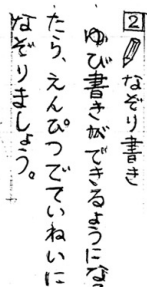 2 なぞり書き
ゆび書きができるようにな
たら、えんぴつでていねいに
なぞりましょう。